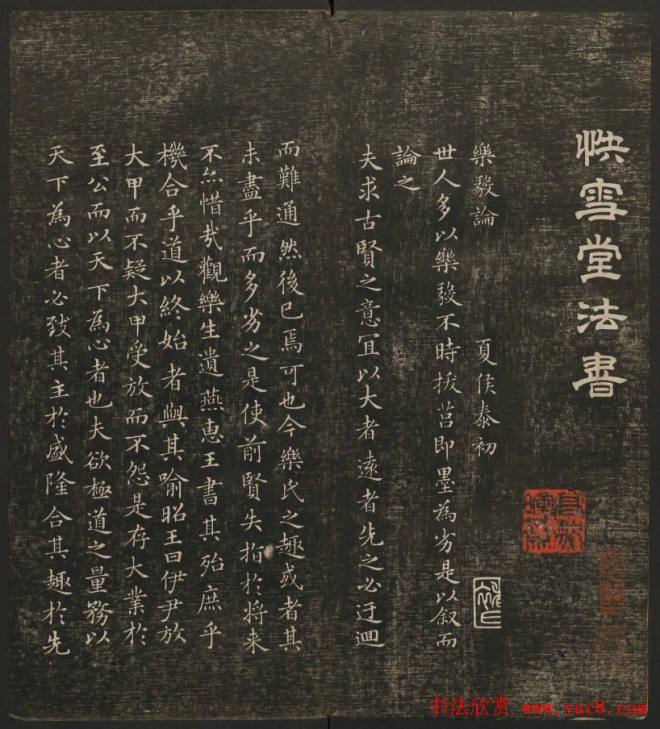 快雪堂法書
樂毅論 夏侯泰初
世人多以樂毅不時拔莒即墨為劣是以叙而
論之
夫求古賢之意宜以大者遠者先之必迂迴
而難通然後已焉可也今樂氏之趣或者其
未盡乎而多劣之是使前賢失指於将来
不亦惜哉觀樂生遺燕惠王書其殆庶乎
機合乎道以終始者與其喻昭王曰伊尹放
大甲而不疑大甲受放而不怨是存大業於
至公而以天下為心者也夫欲極道之量務以
天下為心者必致其主於盛隆合其趣於先
书法欣赏 www.yac8.com